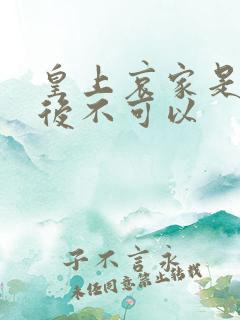 皇上哀家是
後不可以
子不言永
未经同意禁止转载